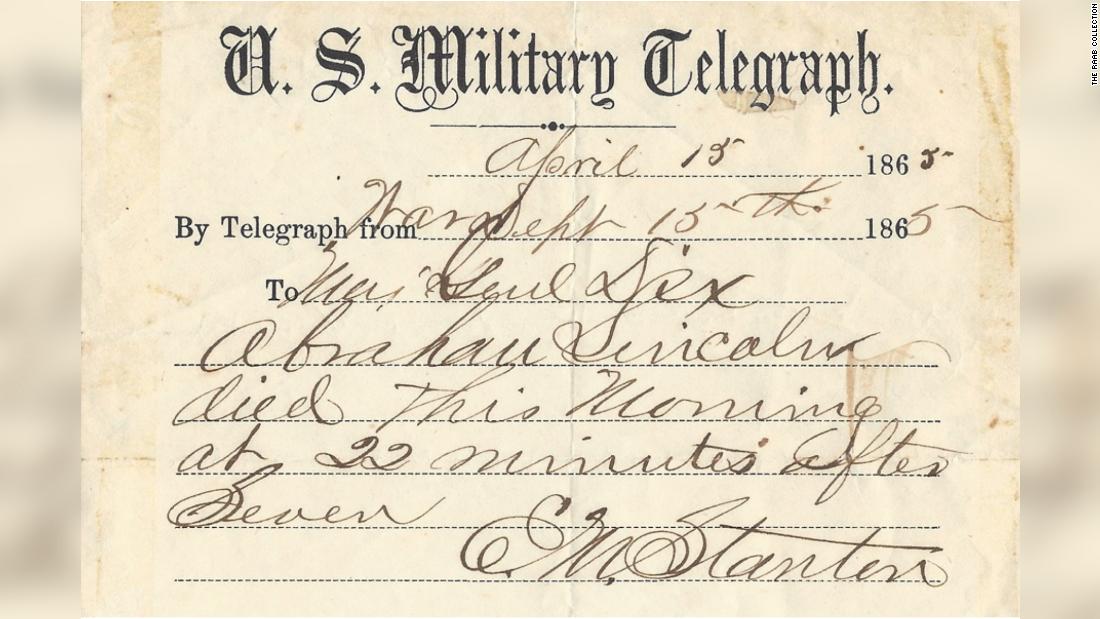 U. S. Military Telegraph.
April 15 1865
By Telegraph from War Dept 15th. 1865
To Maj Genl Dix
Abraham Lincoln
died This Morning
at 22 minutes after
Seven
E. M. Stanton
THE RAAB COLLECTION